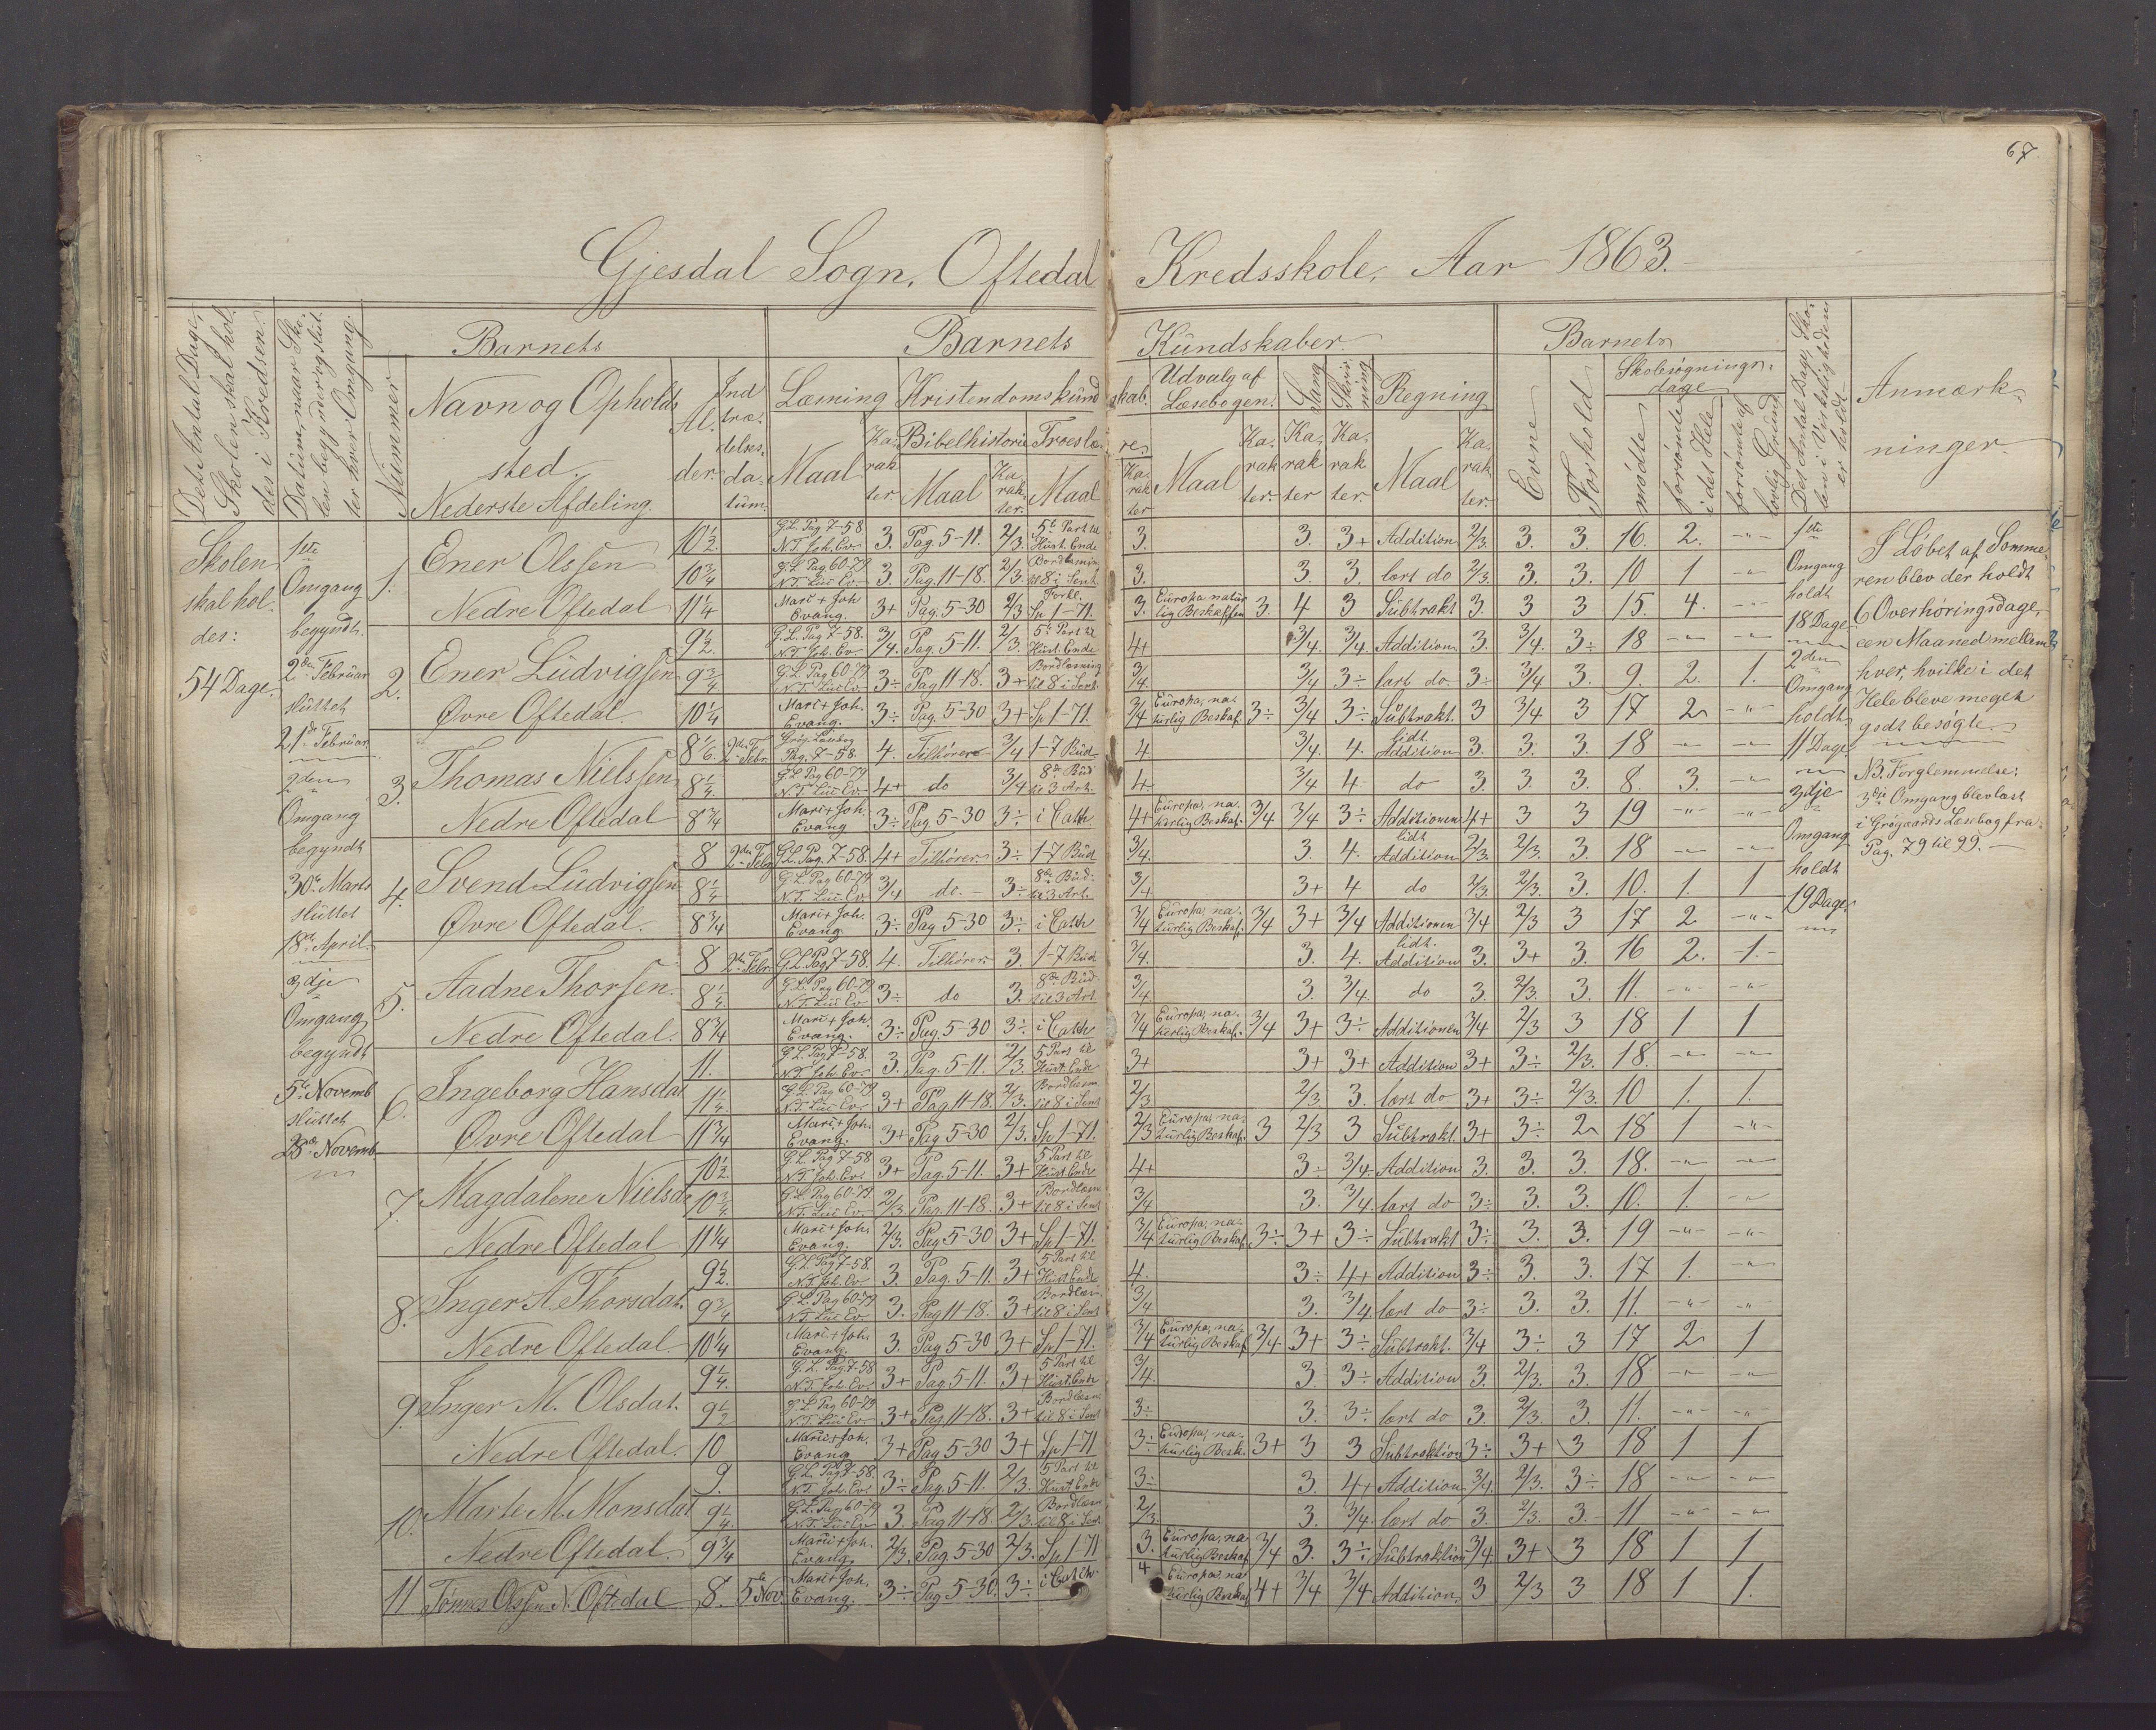 67
Gjesdal Sogn, Oftedal Kredsskole, Aar 1863.
Det Antal Dage, Skolen skal holdes i Kredsen.
Datum, naar Skolen begynder og slutter hver Omgang.
Nummer
Barnets
Navn og Opholdssted.
Nederste Afdeling.
Alder.
Indtrædelsesdatum.
Barnets Kundskaber.
Læsning
Maal
Karakter.
Kristendomskundskab.
Bibelhistorie
Maal
Karakter.
Troeslære
Maal
Karakter
Udvalg af Læsebogen.
Maal
Karakter.
Sang
Karakter
Skrivning
Karakter.
Regning
Maal
Karakter.
Barnets
Evne
Forhold
Skolesøgningsdage
mødte
forsømte i det Hele
forsømte af lovlig Grund
Det Antal Dage, Skolen i Virkeligheden er holdt
Anmærkninger.
Skolen
skal hol-
des:
54 Dage.
1ste
Omgang
begyndt.
2den Februar
sluttet
21de Februar
2den
Omgang
begyndt
30te Marts
sluttet
18de April.
3dje
Omgang
begyndt
5te Novemb
sluttet
25de Novemb.
1. Ener Olssen
Nedre Oftedal
10½ G.L. Pag 7-58 N.T. Joh. Ev. 3. Pag. 5-11. 2/3. 5te Part til Hust. Ende 3. 3. 3+ Addition 2/3. 3. 3. 16. 2. -"-
10¾ G.L. Pag 60-79 N.T. Luc Ev. 3. Pag. 11-18. 2/3. Bordlæsning til 8 i Sent. 3. 3. 3. lært do 2/3. 3. 3. 10 1 -"-
11¼ Marc + Joh Evang. 3+ Pag. 5-30 2/3 Forkl. Sp 1-71. 3. Europa natur lig Beskaffen 3. 4 3 Subtrakt 3 3 3 15. 4. -"-
2. Ener Ludvigssen
Øvre Oftedal.
9½ G.L. Pag 7-58. N.T. Joh. Ev. 3/4. Pag. 5-11. 2/3. 5te Part til Hust. Ende 4+ 3/4. 3/4. Addition 3. 3/4. 3÷ 18 -"- -"-
9¾ G.L. Pag 60-79 N.T. Luc Ev. 3÷ Pag 11-18. 3+ Bordlæsning til 8 i Sent. 3/4. 3/4 3÷ lært do. 3÷ 3/4 3. 9. 2. 1.
10¼ Marc + Joh. Evang. 3÷ Pag. 5-30 3+ Sp 1-71. 3/4 Europa, na- turlig Beskaf. 3÷ 3/4 3÷ Subtrakt. 3 3/4 3 17 2 -"-
3. Thomas Nielssen
Nedre Oftedal
8 1/6 2den Febr. Grøg. Læsebog Pag. 7-58. 4. Tilhører 3/4 1-7 Bud 4 3/4. 4. lidt Addition 3. 3. 3. 18 -"- -"-
8¼ G.L. Pag 60-79 N.T. Luc Ev. 4+ do 3/4 8de Bud til 3 Art. 4. 3/4 4. do 3. 3. 3. 8. 3. -"-
8¾ Marc + Joh. Evang 3÷ Pag 5-30 3÷ i Cath 4+ Europa, na- turlig Beskaf. 3/4 3/4 3÷ Additionen 4+ 3 3 19 -"- -"-
4. Svend Ludvigssen
Øvre Oftedal.
8 2den Febr G.L. Pag. 7-58. 4+ Tilhører 3÷ 1-7 Bud 3/4. 3. 4. lidt Addition 2/3. 2/3. 3. 18 -"- -"-
8¼ G.L. Pag 60-79 N.T. Luc. Ev. 3/4 do. 3÷ 8de Bud- til 3 Art. 3/4 3+ 4 do 2/3. 2/3. 3. 10. 1. 1
8¾ Marc + Joh. Evang. 3÷ Pag 5-30 3÷ i Cath 3/4 Europa, na- turlig Beskaf. 3/4 3+ 3/4 Additionen 3/4 2/3 3 17 2 -"-
5. Aadne Thorssen.
Nedre Oftedal.
8 2den Febr. G.L. Pag 7-58. 4. Tilhører 3. 1-7 Bud 3/4. 3. 4. lidt. Addition 3. 3+ 3. 16 2. -1.-
8¼ G.L. Pag 60-79 N.T. Luc Ev. 3÷ do 3. 8de Bud til 3 Art. 3/4 3. 3/4. do 3. 2/3. 3. 11. -"- -"-
8¾ Marc + Joh. Evang. 3÷ Pag. 5-30 3÷ i Cath 3/4 Europa, na- turlig Beskaf. 3/4 3+ 3÷ Additionen 3/4 2/3 3 18 1 1
6. Ingeborg Hansdat.
Øvre Oftedal
11. G.L. Pag 7-58. N.T. Joh. Ev. 3. Pag. 5-11. 2/3. 5 Part til Hust. Ende 3+ 3+ 3+ Addition 3+ 3÷ 2/3. 18. -"- -"-
11¼ G.L. Pag 60-79 N.T. Luc Ev. 3+ Pag 11-18. 2/3. Bordlæsn til 8 i Sent 2/3 2/3. 3. lært do 3+ 3÷ 2/3. 10 1. 1.
11¾ Marc + Joh. Evang. 3+ Pag 5-30 2/3. Sp 1-71. 2/3 Europa, na- turlig Beskaf. 3 2/3 3 Subtrakt. 3+ 3÷ 2 18 1 -"-
7. Magdalene Nielsd.
Nedre Oftedal
10½ G.L. Pag 7-58 N.T. Joh. Ev. 3+ Pag. 5-11. 3+ 5 Part til Hust Ende 4+ 3÷ 3/4. Addition 3. 3. 3. 18. -"- -"-
10¾ G.L. Pag 60-79. N.T. Luc Ev. 2/3 Pag. 11-18. 3+ Bordlæsn til 8 i Sent 3/4 3. 3/4. lært do 3÷ 3. 3. 10. 1. -"-
11¼ Marc + Joh. Evang. 2/3. Pag 5-30 3+ Sp 1-71. 3/4 Europa, na- turlig Beskaf. 3÷ 3+ 3÷ Subtrakt 3÷ 3. 3. 19 -"- -"-
8. Inger A. Thorsdat.
Nedre Oftedal.
9½ G.L. Pag 7-58. N.T. Joh. Ev. 3. Pag. 5-11. 3+ 5 Part til Hust Ende 4. 3÷ 4+ Addition 3÷ 3. 3. 17 1. -"-
9¾ G.L. Pag 60-79 N.T. Luc Ev. 3. Pag 11-18. 3+ Bordlæsn til 8 i Sent 3/4 3. 3/4 lært do 3÷ 3. 3. 11. -"- -"-
10¼ Marc + Joh. Evang. 3. Pag 5-30 3+ Sp 1-71. 3/4 Europa, na- turlig Beskaf 3/4 3+ 3÷ Subtrakt. 3/4 3÷ 3 17 2 1
9. Inger M. Olsdat.
Nedre Oftedal.
9¼ G.L. Pag. 7-58 N.T. Joh. Ev. 3+ Pag 5-11. 3+ 5 Part til Hust. Ende 3/4. 3. 3÷ Addition 3. 2/3. 3. 18 -"- -"-
9½ G.L. Pag 60-79 N.T. Luc Ev. 3+ Pag 11-18. 3+ Bordlæsn til 8 i Sent 3÷ 3. 3÷ lært do 3. 2/3. 3. 11. -"- -"-
10 Marc + Joh. Evang 3+ Pag 5-30 3+ Sp 1-71 3÷ Europa, na- turlig Besk. 3+ 3 3 Subtraktion 3÷ 3+ 3 18 1 1
10. Marte M. Monsdat
Nedre Oftedal.
9. G.L. Pag 7-58. N.T. Joh. Ev. 3÷ Pag. 5-11. 2/3. 5 Part til Hust Ende 3÷ 3. 4+ Addition 3/4. 2/3. 3÷ 18 -"- -"-
9¼ G.L. Pag 60-79 N.T. Luc Ev 3. Pag 11-18. 2/3. Bordlæsn til 8 i Sent. 2/3. 3. 3/4. lært do 3. 2/3. 3. 11 -"- -"-
9¾ Marc + Joh. Evang. 2/3. Pag. 5-30 2/3. Sp 1-71 3. Europa, na- turlig Beskaf 3/4 3. 3÷ Subtraktion 3/4. 3+ 3 18 1 1
11 Tønnes Olssen N. Oftedal 8. 5te Nov. Marc + Joh. Evang. 3÷ Pag 5-30. 3÷ i Cath. 4 Europa, na turlig Beskaf 4+ 3/4 3/4 Addition 3 2/3 3 18 1 1.
1ste
Omgang
holdt
18 Dage
2den
Omgang
holdt
11 Dage
3dje
Omgang
holdt
19 Dage.
I Løbet af Somme-
ren blev der holdt
6 Overhøringsdage,
een Maaned mellem
hver, hvilke i det
Hele bleve meget
godt besøgte.
NB. Forglemmelse:
3dje Omgang blev læst
i Grøgaards Læsebog fra
Pag. 79 til 99.